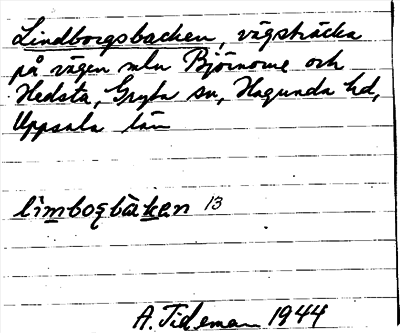 Lindborgsbacken, vägsträcka
på vägen mln Björnome och
Hedsta, Gryta sn, Hagunda hd,
Uppsala län
limboςbàken 13
A. Tideman 1944